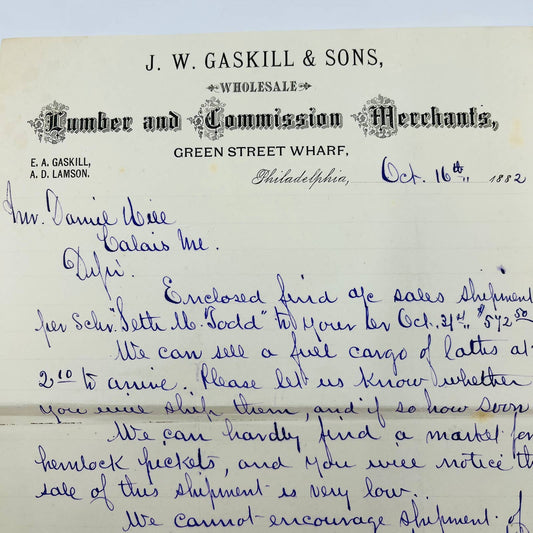 J. W. GASKILL & SONS,
WHOLESALE
Lumber and Commission Merchants,
GREEN STREET WHARF,
E. A. GASKILL,
A. D. LAMSON.
Philadelphia, Oct. 16th, 1882
Mr. Daniel Hill
Calais Me.
Enclosed find a/c sales shipment
per Schr. "Seth M. Todd" to your cr Oct. 31st, $572 50
We can sell a full cargo of laths at
2 10 to arrive. Please let us know whether
you will ship them, and if so how soon
We can hardly find a market for
hemlock pickets, and you will notice th
sale of this shipment is very low.
We cannot encourage shipment of